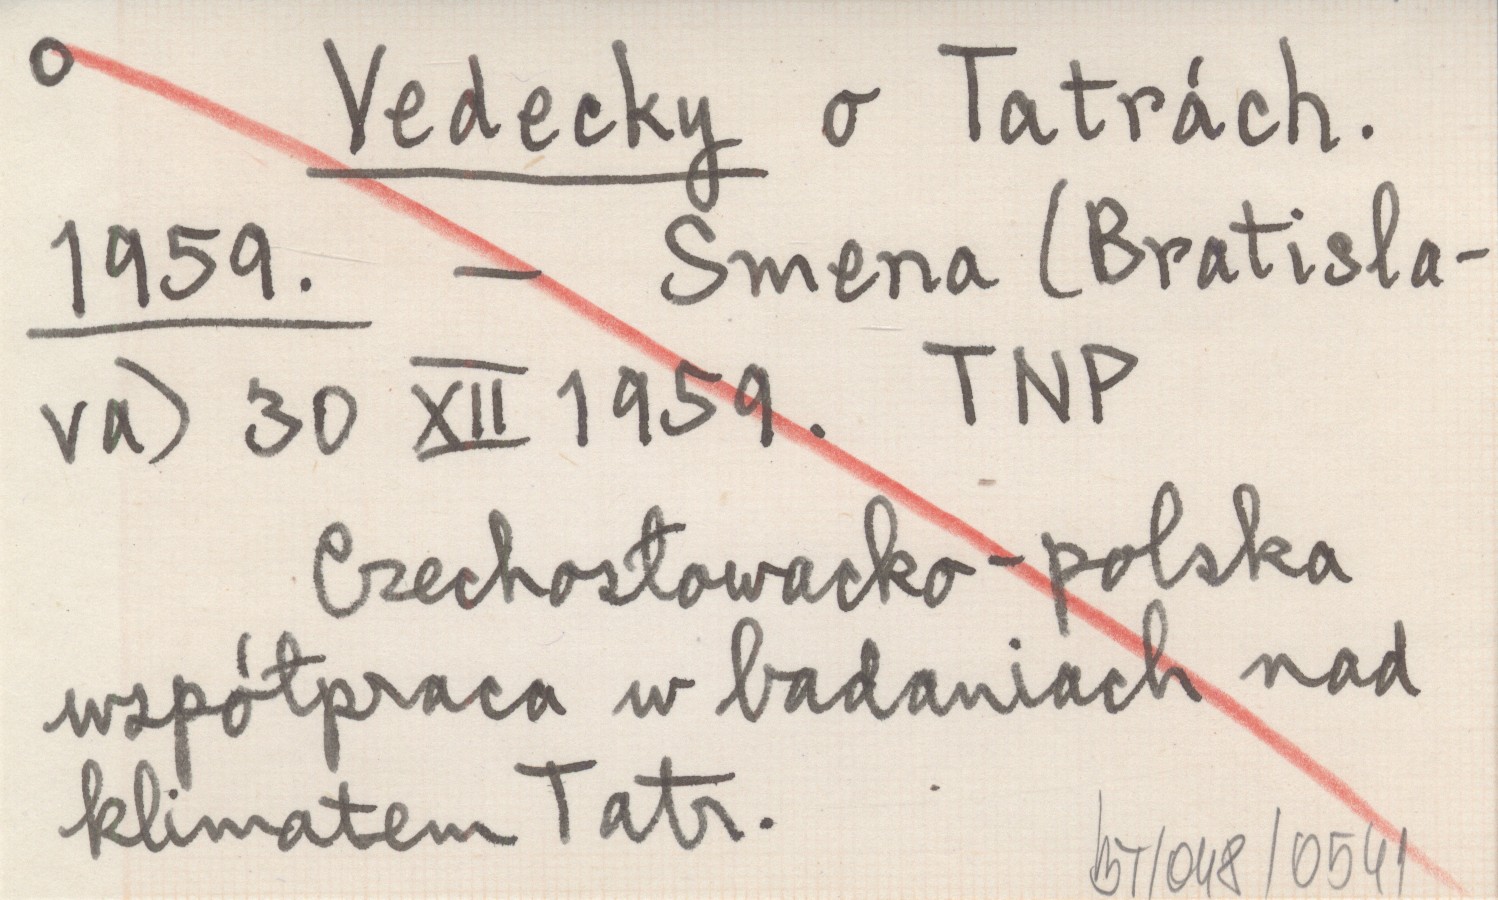 o Vedecky o Tatrách.
1959. – Smena (Bratisla-
va) 30 XII 1959. TNP
Czechosłowacko-polska
współpraca w badaniach nad
klimatem Tatr.
BT/048/0541